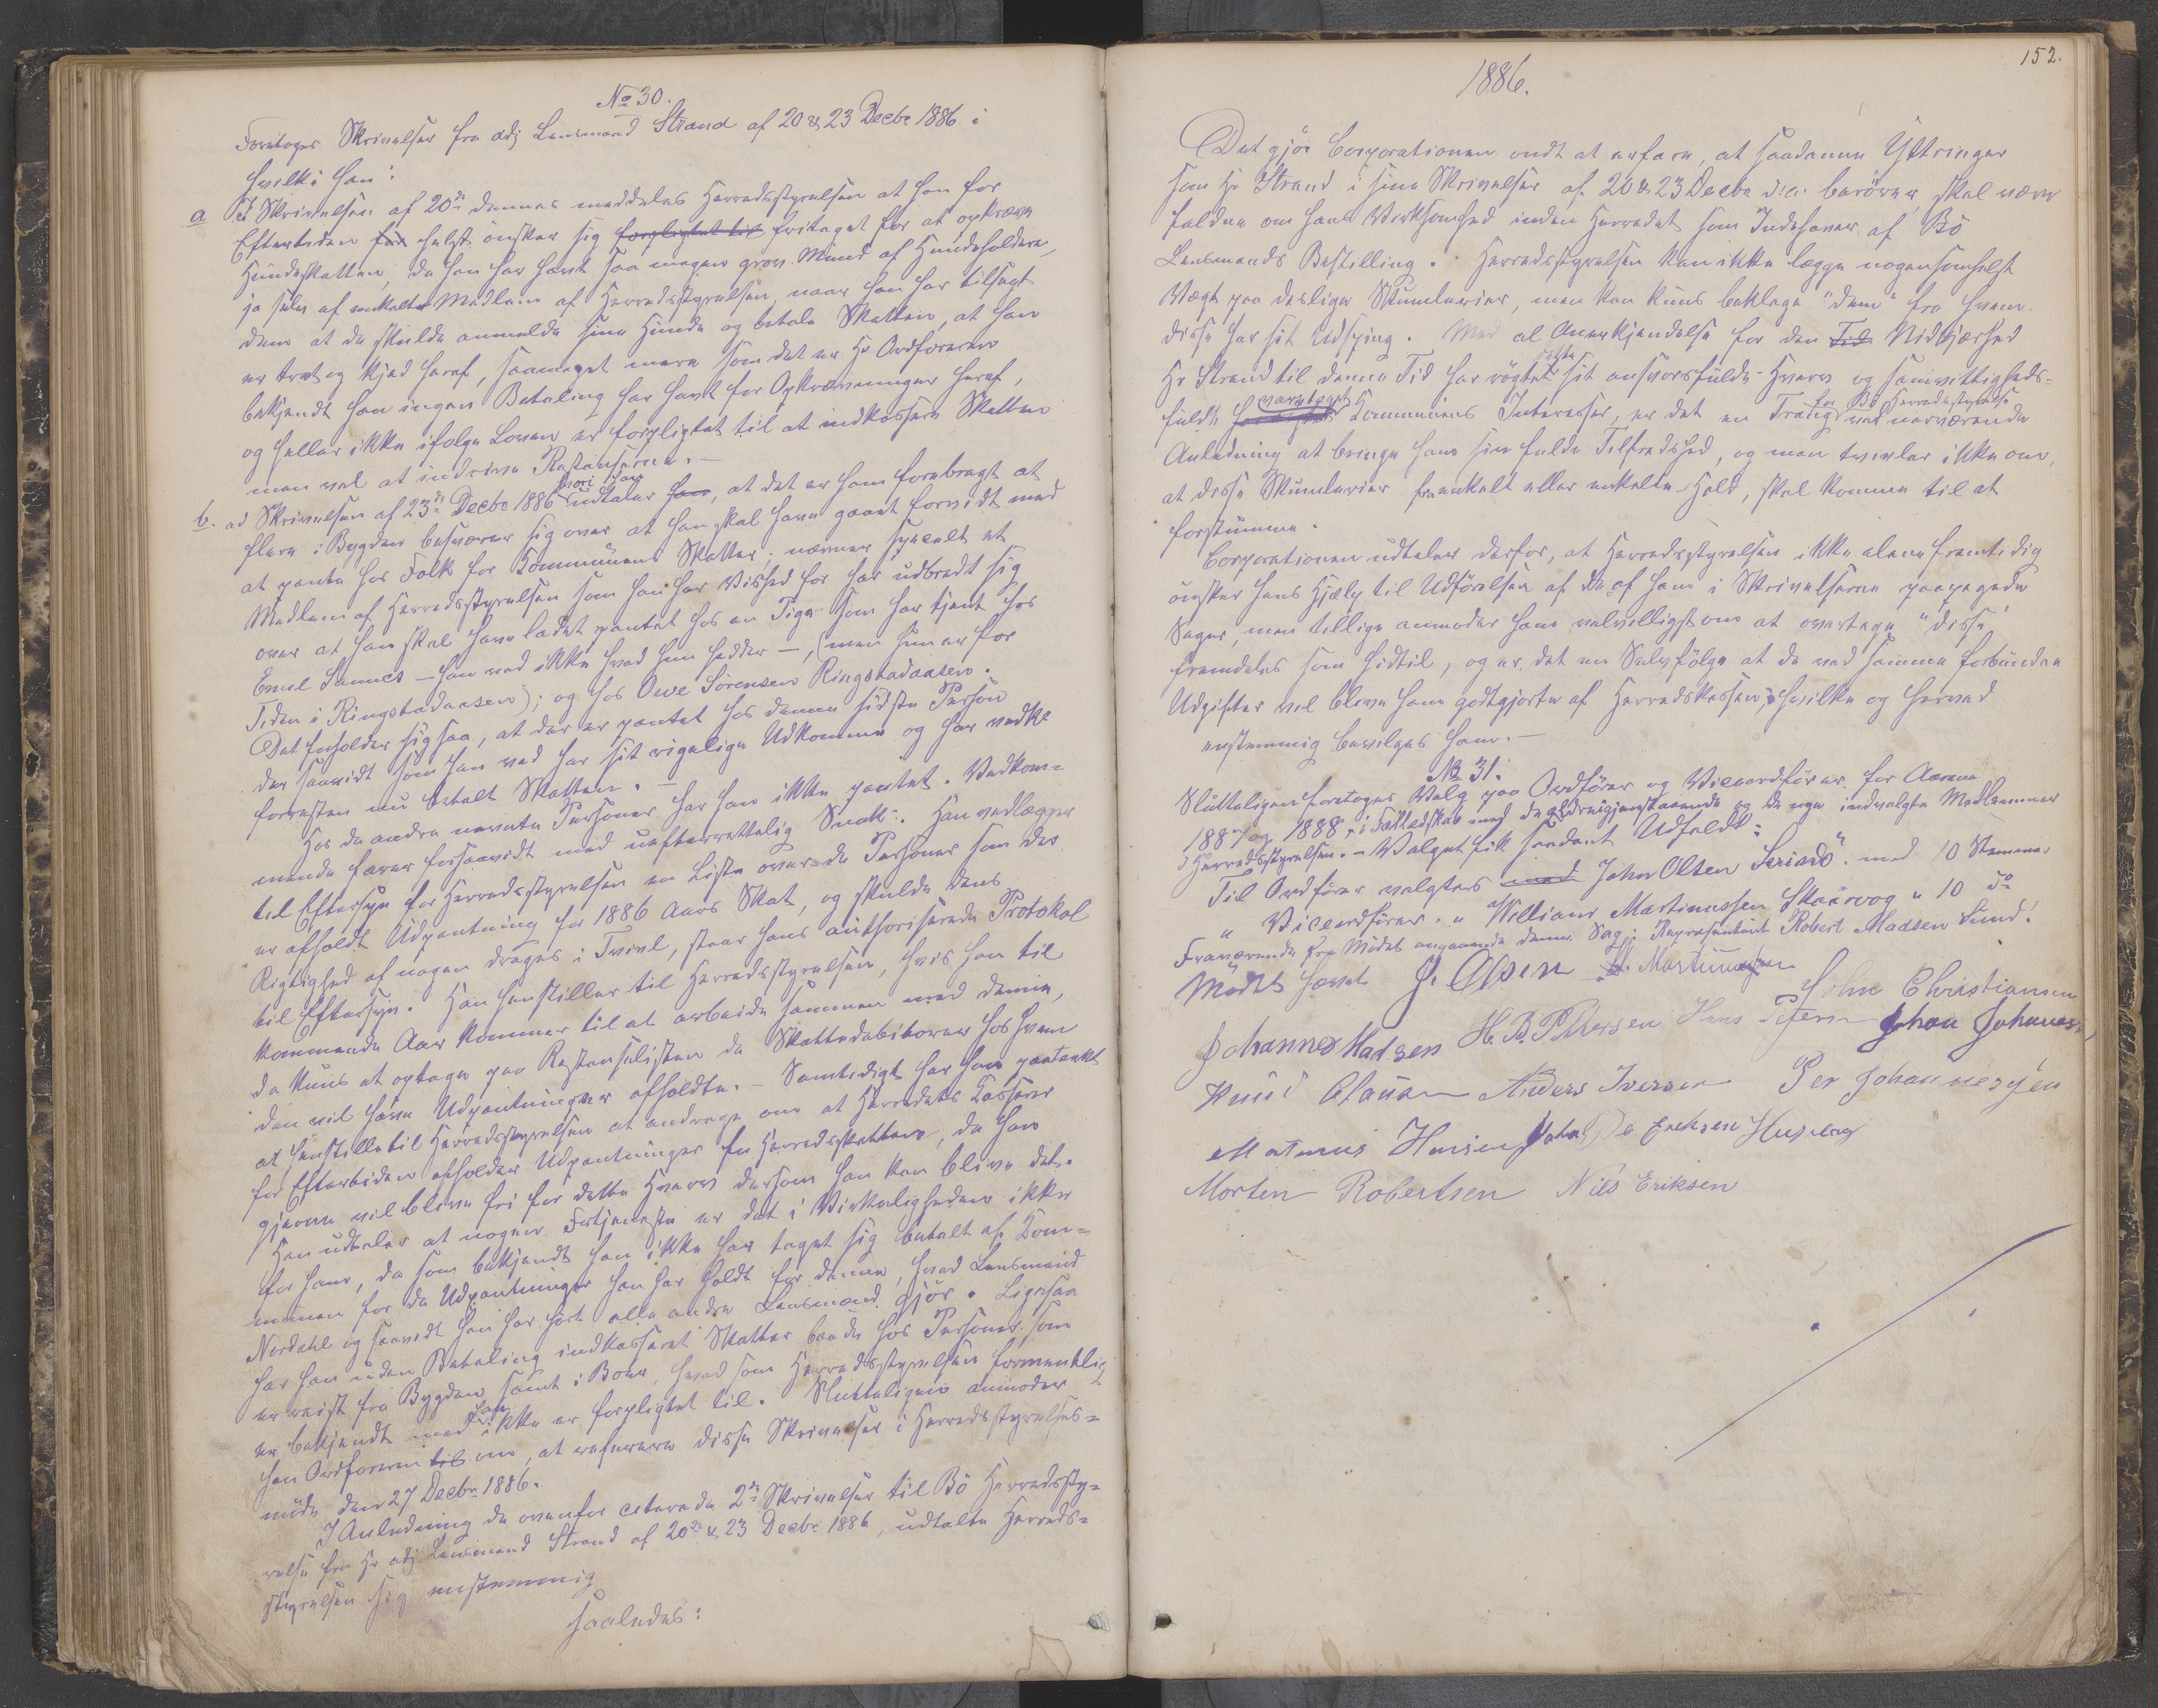 No 30.
Foretoges Skrivelser fra adj Lensmand Strand af 20 & 23 Decbr 1886 i
hvilke han:
a I Skrivelsen af 20de dennes meddeles Herredsstyrelsen at han for
Eftertiden for helst ønsker sig forpligtet til fritaget for at opkræve
Hundeskatten, da han har havt saa megen grov Mund af Hundeholdere,
ja selv af enkelte Medlem af Herredsstyrelsen, naar han har tilsagt
dem at de skulde anmelde sine Hunde og betale Skatten, at han
er træt og kjed heraf, saameget mere som det er Hr Ordføreren
bekjendt han ingen Betaling har havt for Opkrævninger heraf,
og heller ikke ifølge Loven er forpligtet til at indkassere Skatten
men vel at inddrive Restanserne.-
b. ad Skrivelsen af 23de Decbr 1886 hvori han udtaler han, at det er ham forebragt at
flere i Bygden besværer sig over at han skal have gaaet forvidt med
at pante hos Folk for Kommunens Skatter; nævner specielt et
Medlem af Herredsstyrelsen som han har Vished for har udbredt sig
over at han skal have ladet pantet hos en Pige som har tjent hos
Emil Sannes - han ved ikke hvad hun hedder -, (men hun er for
Tiden i Ringstadaasen); og hos Ove Sørensen Ringstadaasen.
Det forholder sig saa, at der er pantet hos denne sidste Person
der saavidt som han ved har sit rigelige Udkomme og har vedk.
forresten nu betalt Skatten. -
Hos de andre nævnte Personer har han ikke pantet. Vedkom=
mende farer forsaavidt med uefterrettelig Snak:. Han vedlægger
til Eftersyn for Herredsstyrelsen en Liste over de Personer som der
er afholdt Udpantning for 1886 Aars Skat, og skulde dens
Rigtighed af nogen drages i Tvivl, staar hans authoriserede Protokol
til Eftersyn. Han henstiller til Herredsstyrelsen, hvis han til
kommende Aar kommer til at arbeide sammen med denne,
da kuns at optage paa Restanselisten de Skattedebitorer hos hvem
den vil have Udpantninger afholdte. - Samtidigt har han paatænkt
at henstille til Herredsstyrelsen at andrage om at Herredets Kasserer
for Eftertiden afholder Udpantninger for Herredsskatten, da han
gjerne vil blive fri for dette Hverv dersom han kan blive det.
Han udtaler at nogen Fortjeneste er det i Virkeligheden ikke
for ham, da som bekjendt han ikke har taget sig betalt af Kom=
munen for de Udpantninger han har holdt for denne, hvad Lensmand
Nordahl og saavidt han har hørt alle andre Lensmænd gjør. Ligesaa
har han uden Betaling indkasseret Skatter baade hos Personer som
er reist fra Bygden samt i Boer, hvad som Herredsstyrelsen formentlig
er bekjendt med han ikke er forpligtet til. Sluttelignen anmoder
han Ordføreren til om, at referere disse Skrivelser i Herredsstyrelses=
møde den 27 Decbr 1886.
I Anledning de ovenfor citerede 2de Skrivelser til Bø Herredssty=
relse fra Hr adj Lensmand Strand af 20de & 23 Decbr 1886, udtalte Herreds=
styrelsen sig enstemmig
saaledes:
152.
1886.
Det gjør Corporationen ondt at erfare, at saadanne Yttringer
som Hr Strand i sine Skrivelser af 20 & 23 Decbr d.a. berører, skal være
faldne om hans Virksomhed inden Herredet som Indehaver af Bø
Lensmands Bestilling. Herredsstyrelsen kan ikke lægge nogensomhelst
Vægt paa deslige Skumlerier, men kan kuns beklage "dem" fra hvem
disse har sit Udspring. Med al Anerkjendelse for den Tid Nidkjærhed
Hr Strand til denne Tid har røgtet dette sit ansvarsfulde Hverv og samvittigheds=
fulde varetaget Kommunens Interesser, er det en Trang for Bø Herredsstyrelse ved nærværende
Anledning at bringe ham sin fulde Tilfredshed, og man tvivler ikke om,
at disse Skumlerier fra enkelt eller enkeltes Hold, skal komme til at
forstumme.
Corporationen udtaler derfor, at Herredsstyrelsen ikke alene fremtidig
ønsker hans Hjælp til Udførelsen af de af ham i Skrivelserne paapegede
Sager, men tillige anmoder ham velvilligst om at overtage "disse"
fremdeles som hidtil, og er det en Selvfølge at de ved samme forbundne
Udgifter vil blive ham godtgjorte af Herredskassen, hvilke og herved
enstemmig bevilges ham. -
No 31.
Sluttelignen foretoges Valg paa Ordfører og Viceordfører for Aarene
1887 og 1888, i Fællesskab med de ældre igjenstaaende og de nye indvalgte Medlemmer
i Herredsstyrelsen. - Valget fik saadant Udfaldt:
Til Ordfører valgtes med John Olsen Steirodø" med 10 Stemmer
" Viceordfører " William Martinussen Skaarvog " 10 do
Fraværende fra Mødet angaaende denne Sag: Representant Robert Madsen Sund!
Mødet hævet J. Olsen W. Martinussen
John Christiansen
Johannes Madsen H. B. Pettersen Hans Petersen Johan Johanesen,
Knud Clausen Anders Iversen Per Johannesen
Matinus Hansen Johan Eriksen Husvær
Morten Robertsen Nils Eriksen